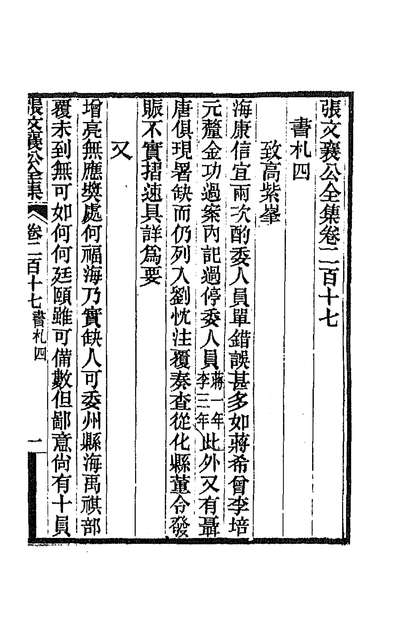 張文襄公全集卷二百十七
書札四
致高紫峯
海康信宜兩次酌委人員單錯誤甚多如蔣希曾李培
元釐金功過案內記過停委人員蔣一年李三年此外又有聶
唐俱現署缺而仍列入劉忱注覆奏查從化縣董令發
賑不實摺速具詳爲要
又
增亮無應奬處何福海乃實缺人可委州縣海禹祺部
覆未到無可如何何廷頤雖可備數但鄙意尙有十員
張文襄公全集
卷二百十七 書札四
一